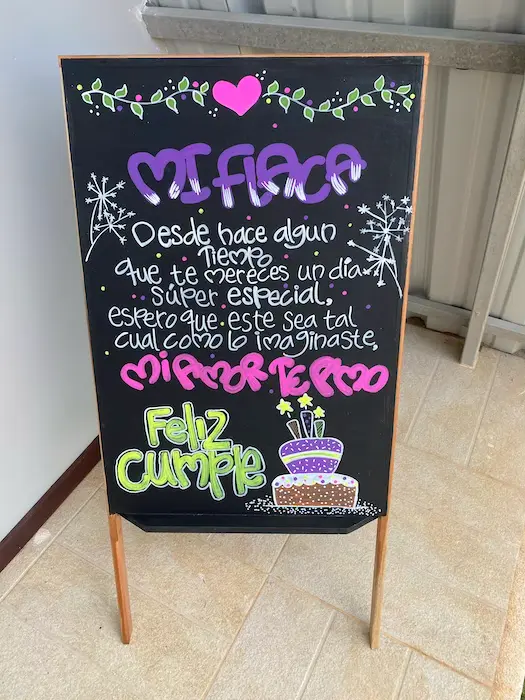 MI FlACA
Desde hace algun
Tiempo
que te mereces un día
súper especial,
espero que este sea tal
cual como lo imaginaste,
mi Amor Te Amo
Feliz
Cumple